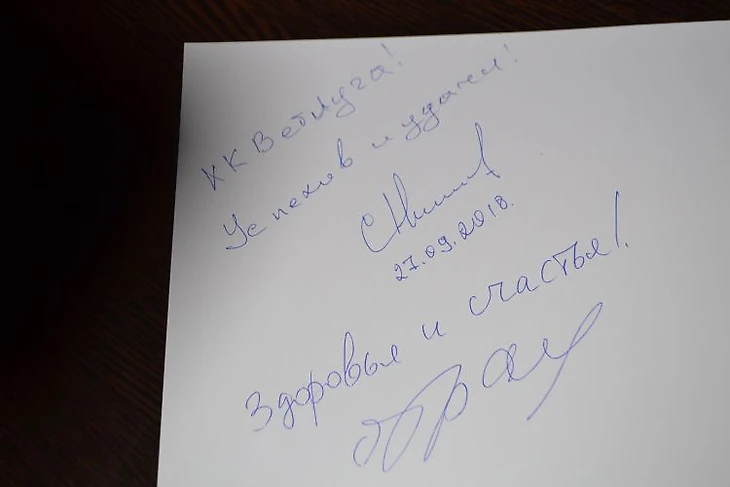 ХК Ветлуга!
Успехов и удачи!
27.09.2018.
Здоровья и счастья!